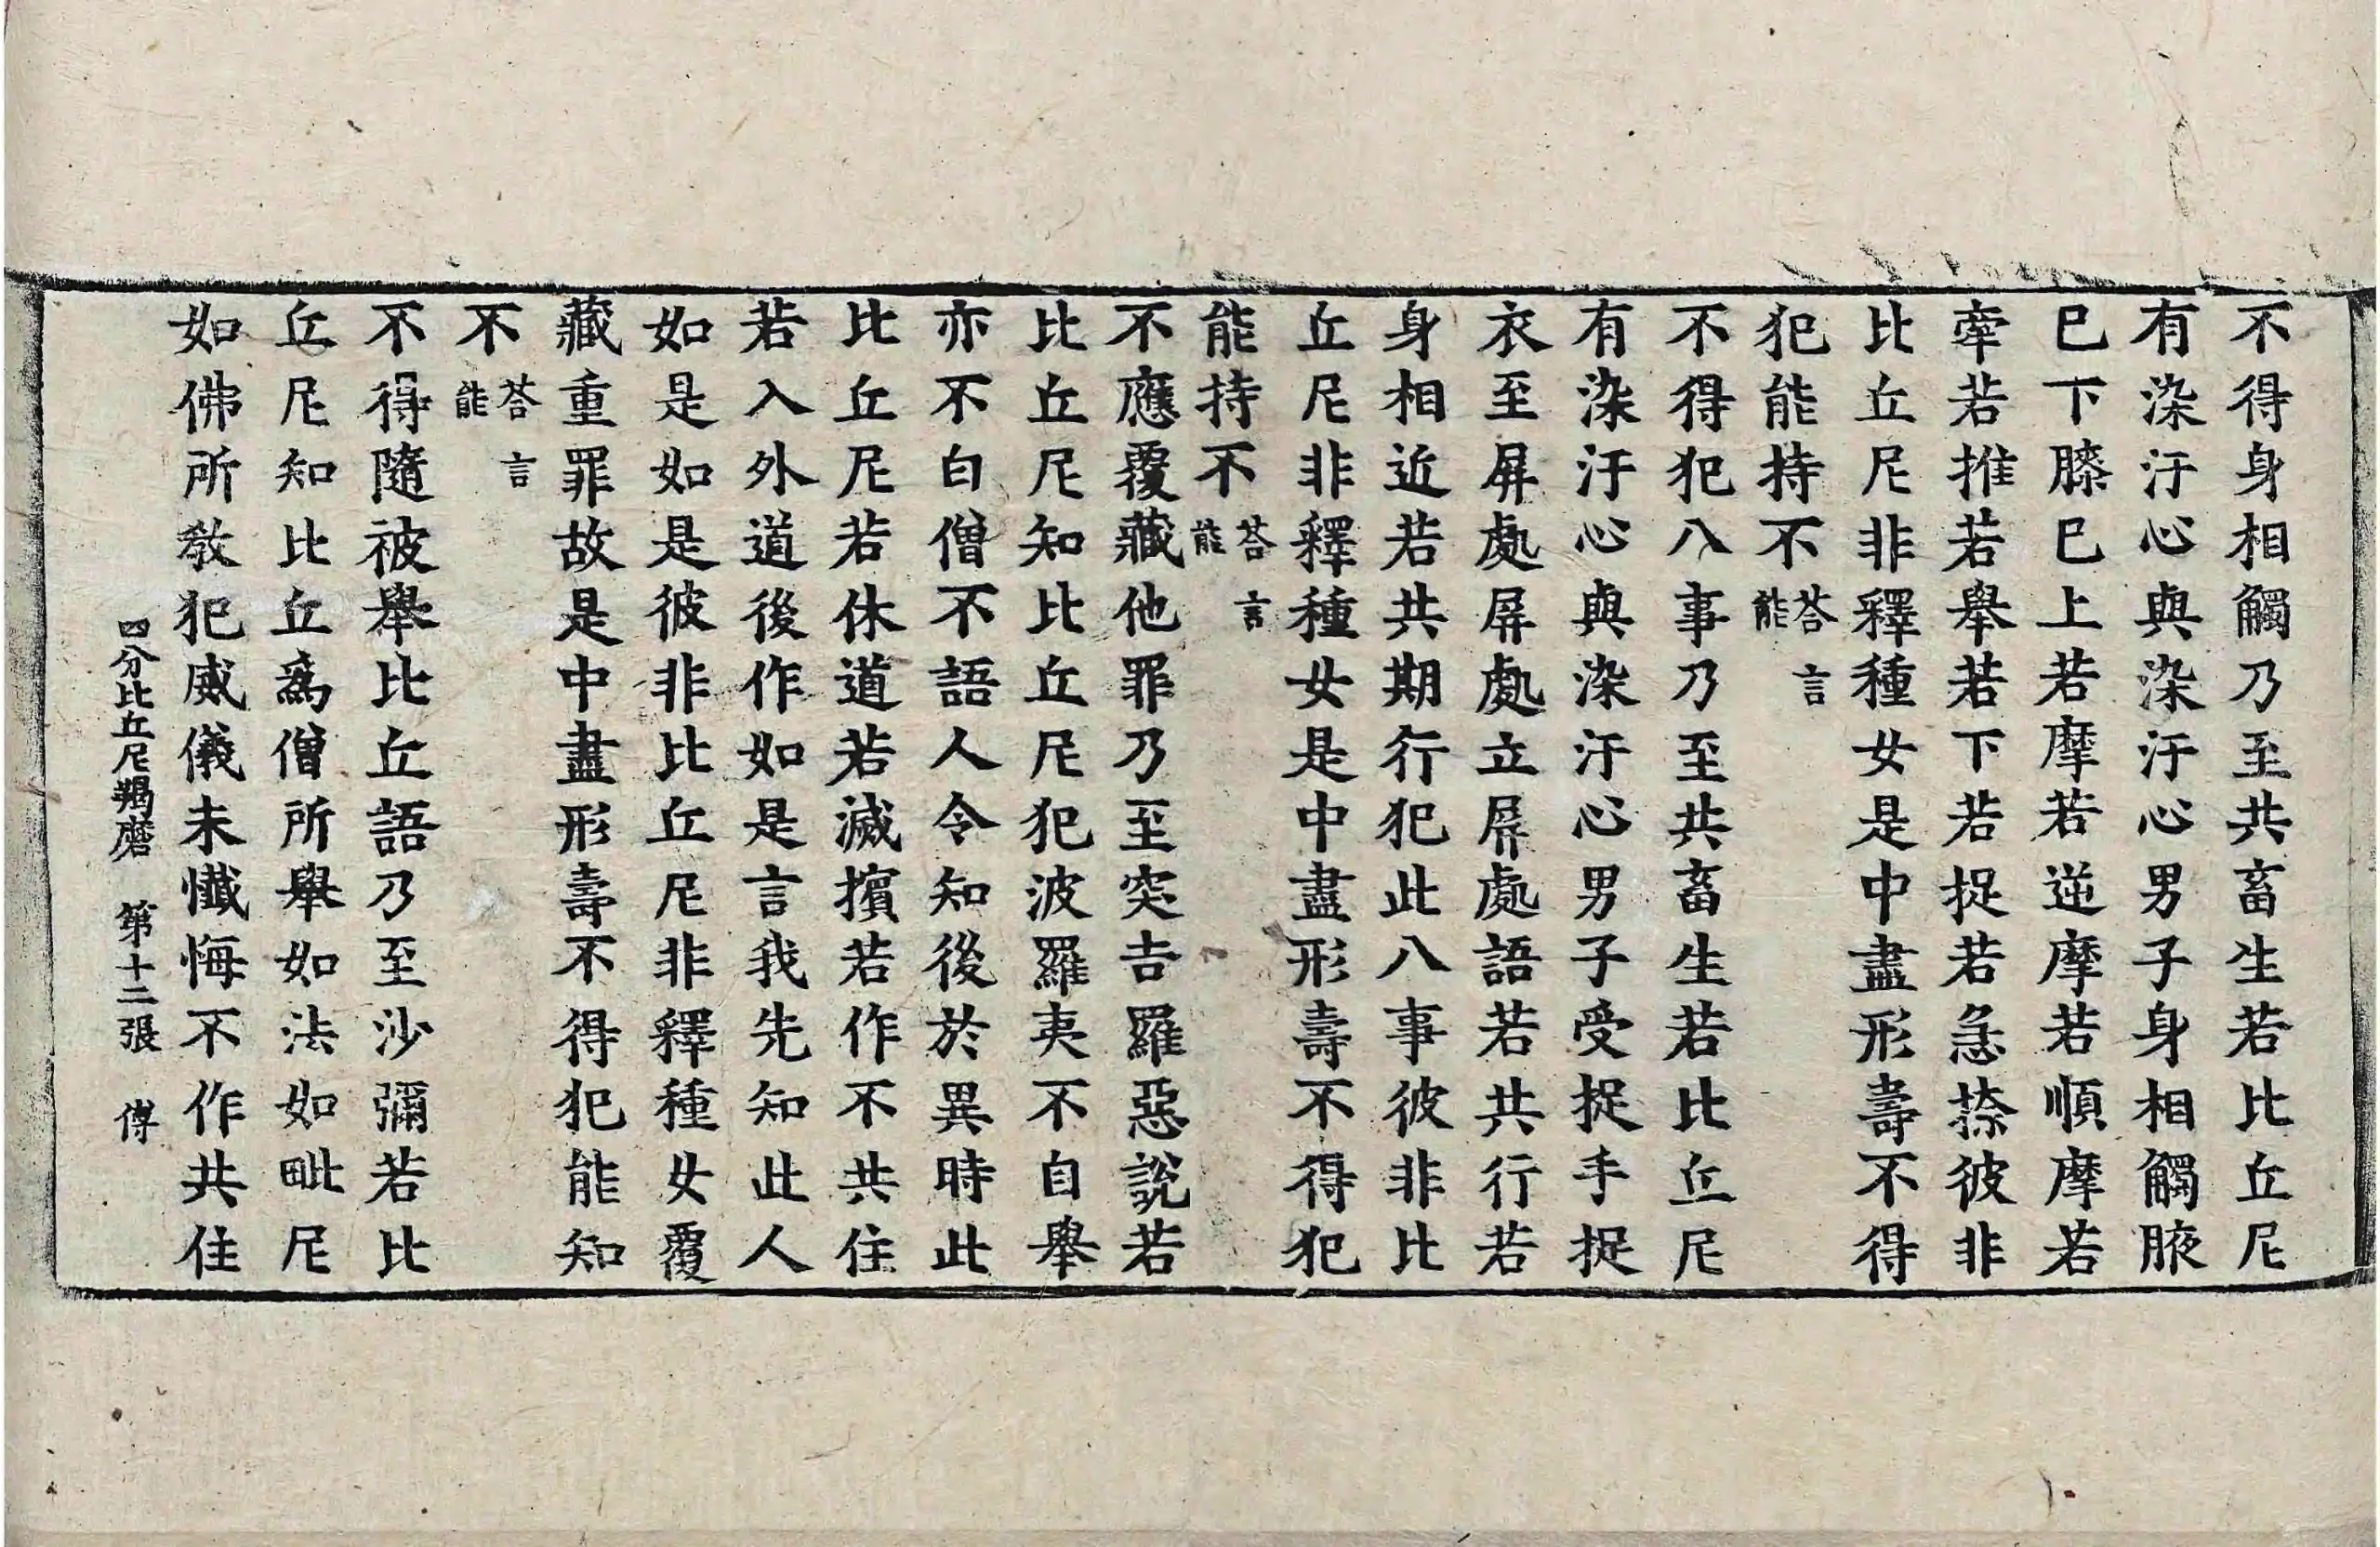 不得身相觸乃至共畜生若比丘尼
有染汙心與染汙心男子身相觸腋
已下膝已上若摩若逆摩若順摩若
牽若推若舉若下若捉若急捺彼非
比丘尼非釋種女是中盡形壽不得
犯能持不答言能
不得犯八事乃至共畜生若比丘尼
有染汙心與染汙心男子受捉手捉
衣至屏處屏處立屏處語若共行若
身相近若共期行犯此八事彼非比
丘尼非釋種女是中盡形壽不得犯
能持不答言能
不應覆藏他罪乃至突吉羅惡說若
比丘尼知比丘尼犯波羅夷不自舉
亦不白僧不語人令知後於異時此
比丘尼若休道若滅擯若作不共住
若入外道後作如是言我先知此人
如是如是彼非比丘尼非釋種女覆
藏重罪故是中盡形壽不得犯能知
不答言能
不得隨被舉比丘語乃至沙彌若比
丘尼知比丘爲僧所舉如法如毗尼
如佛所敎犯威儀未懺悔不作共住
四分比丘尼羯磨 第十二張 傅